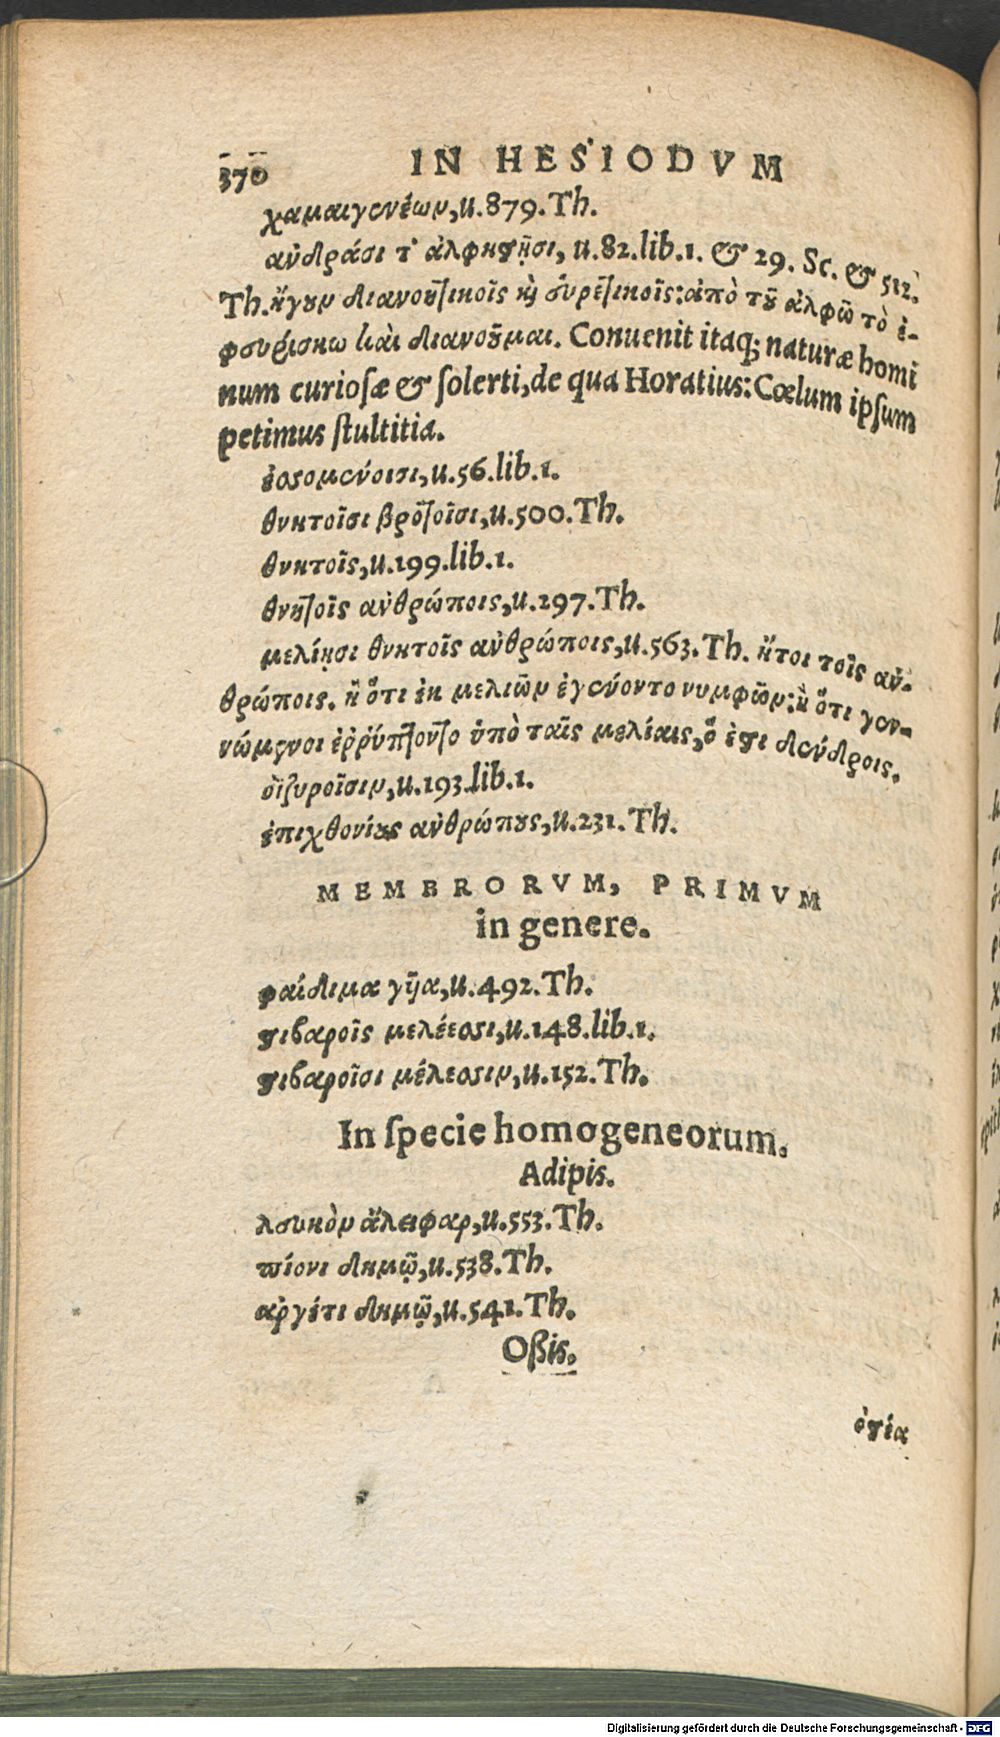 370 IN HESIODVM
χαμαιγενέων,u.879.Th.
ἀνδράσι τ' ἀλφηστῇσι, u.82.lib.1. & 29. Sc. & 512.
Th.ἤγουν διανοητικοῖς καὶ εὑρετικοῖς:ἀπὸ τοῦ ἀλφῶ τὸ ἐ-
φευρίσκω καὶ διανοοῦμαι. Conuenit itaq; naturæ homi
num curiosæ & solerti,de qua Horatius: Cœlum ipsum
petimus stultitia.
ἐσσομένοισι,u.56.lib.1.
θνητοῖσι βροτοῖσι,u.500.Th.
θνητοῖς,u.199.lib.1.
θνητοῖς ἀνθρώποις,u.297.Th.
μελίῃσι θνητοῖς ἀνθρώποις,u.563.Th. ἤτοι τοῖς ἀν-
θρώποις. ἢ ὅτι ἐκ μελιῶν ἐγένοντο νυμφῶν:ἢ ὅτι γεν-
νώμενοι ἐρρίπτοντο ὑπὸ ταῖς μελίαις,ὅ ἐστι δένδροις.
ὀϊζυροῖσιν,u.193.lib.1.
ἐπιχθονίους ἀνθρώπους,u.231.Th.
MEMBRORVM, PRIMVM
in genere.
φαίδιμα γυῖα,u.492.Th.
στιβαροῖς μελέεσσι,u.148.lib.1.
στιβαροῖσι μέλεσσιν,u.152.Th.
In specie homogeneorum.
Adipis.
λευκὸν ἄλειφαρ,u.553.Th.
πίονι δημῷ,u.538.Th.
ἀργέτι δημῷ,u.541.Th.
Oßis.
ὀστέα
Digitalisierung gefördert durch die Deutsche Forschungsgemeinschaft - DFG